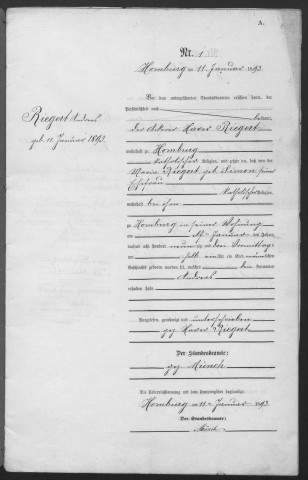 A.
Nr. 1
Homburg am 11. Januar 1893.
Vor dem unterzeichneten Standesbeamten erschien heute, der
Persönlichkeit nach
kannt,
der Ackerer Xaver Riegert
wohnhaft zu Homburg
katholischer Religion, und zeigte an, daß von der
Maria Riegert geb. Simon seiner
Ehefrau
katholischer Religion,
wohnhaft bei ihm
zu Homburg in seiner Wohnung
am Januar des Jahres
tausend acht hundert neunzig drei Vormittags
um halb ein Uhr ein Kind männlichen
Geschlechts geboren worden sei, welches den Vornamen
Andreas
erhalten habe
Riegert Andreas
geb. 11. Januar 1893.
Vorgelesen, genehmigt und unterschrieben
gez. Xaver Riegert
Der Standesbeamte:
gez. Münch
Die Uebereinstimmung mit dem Hauptregister beglaubigt.
Homburg am 11. Januar 1893.
Der Standesbeamte:
Münch